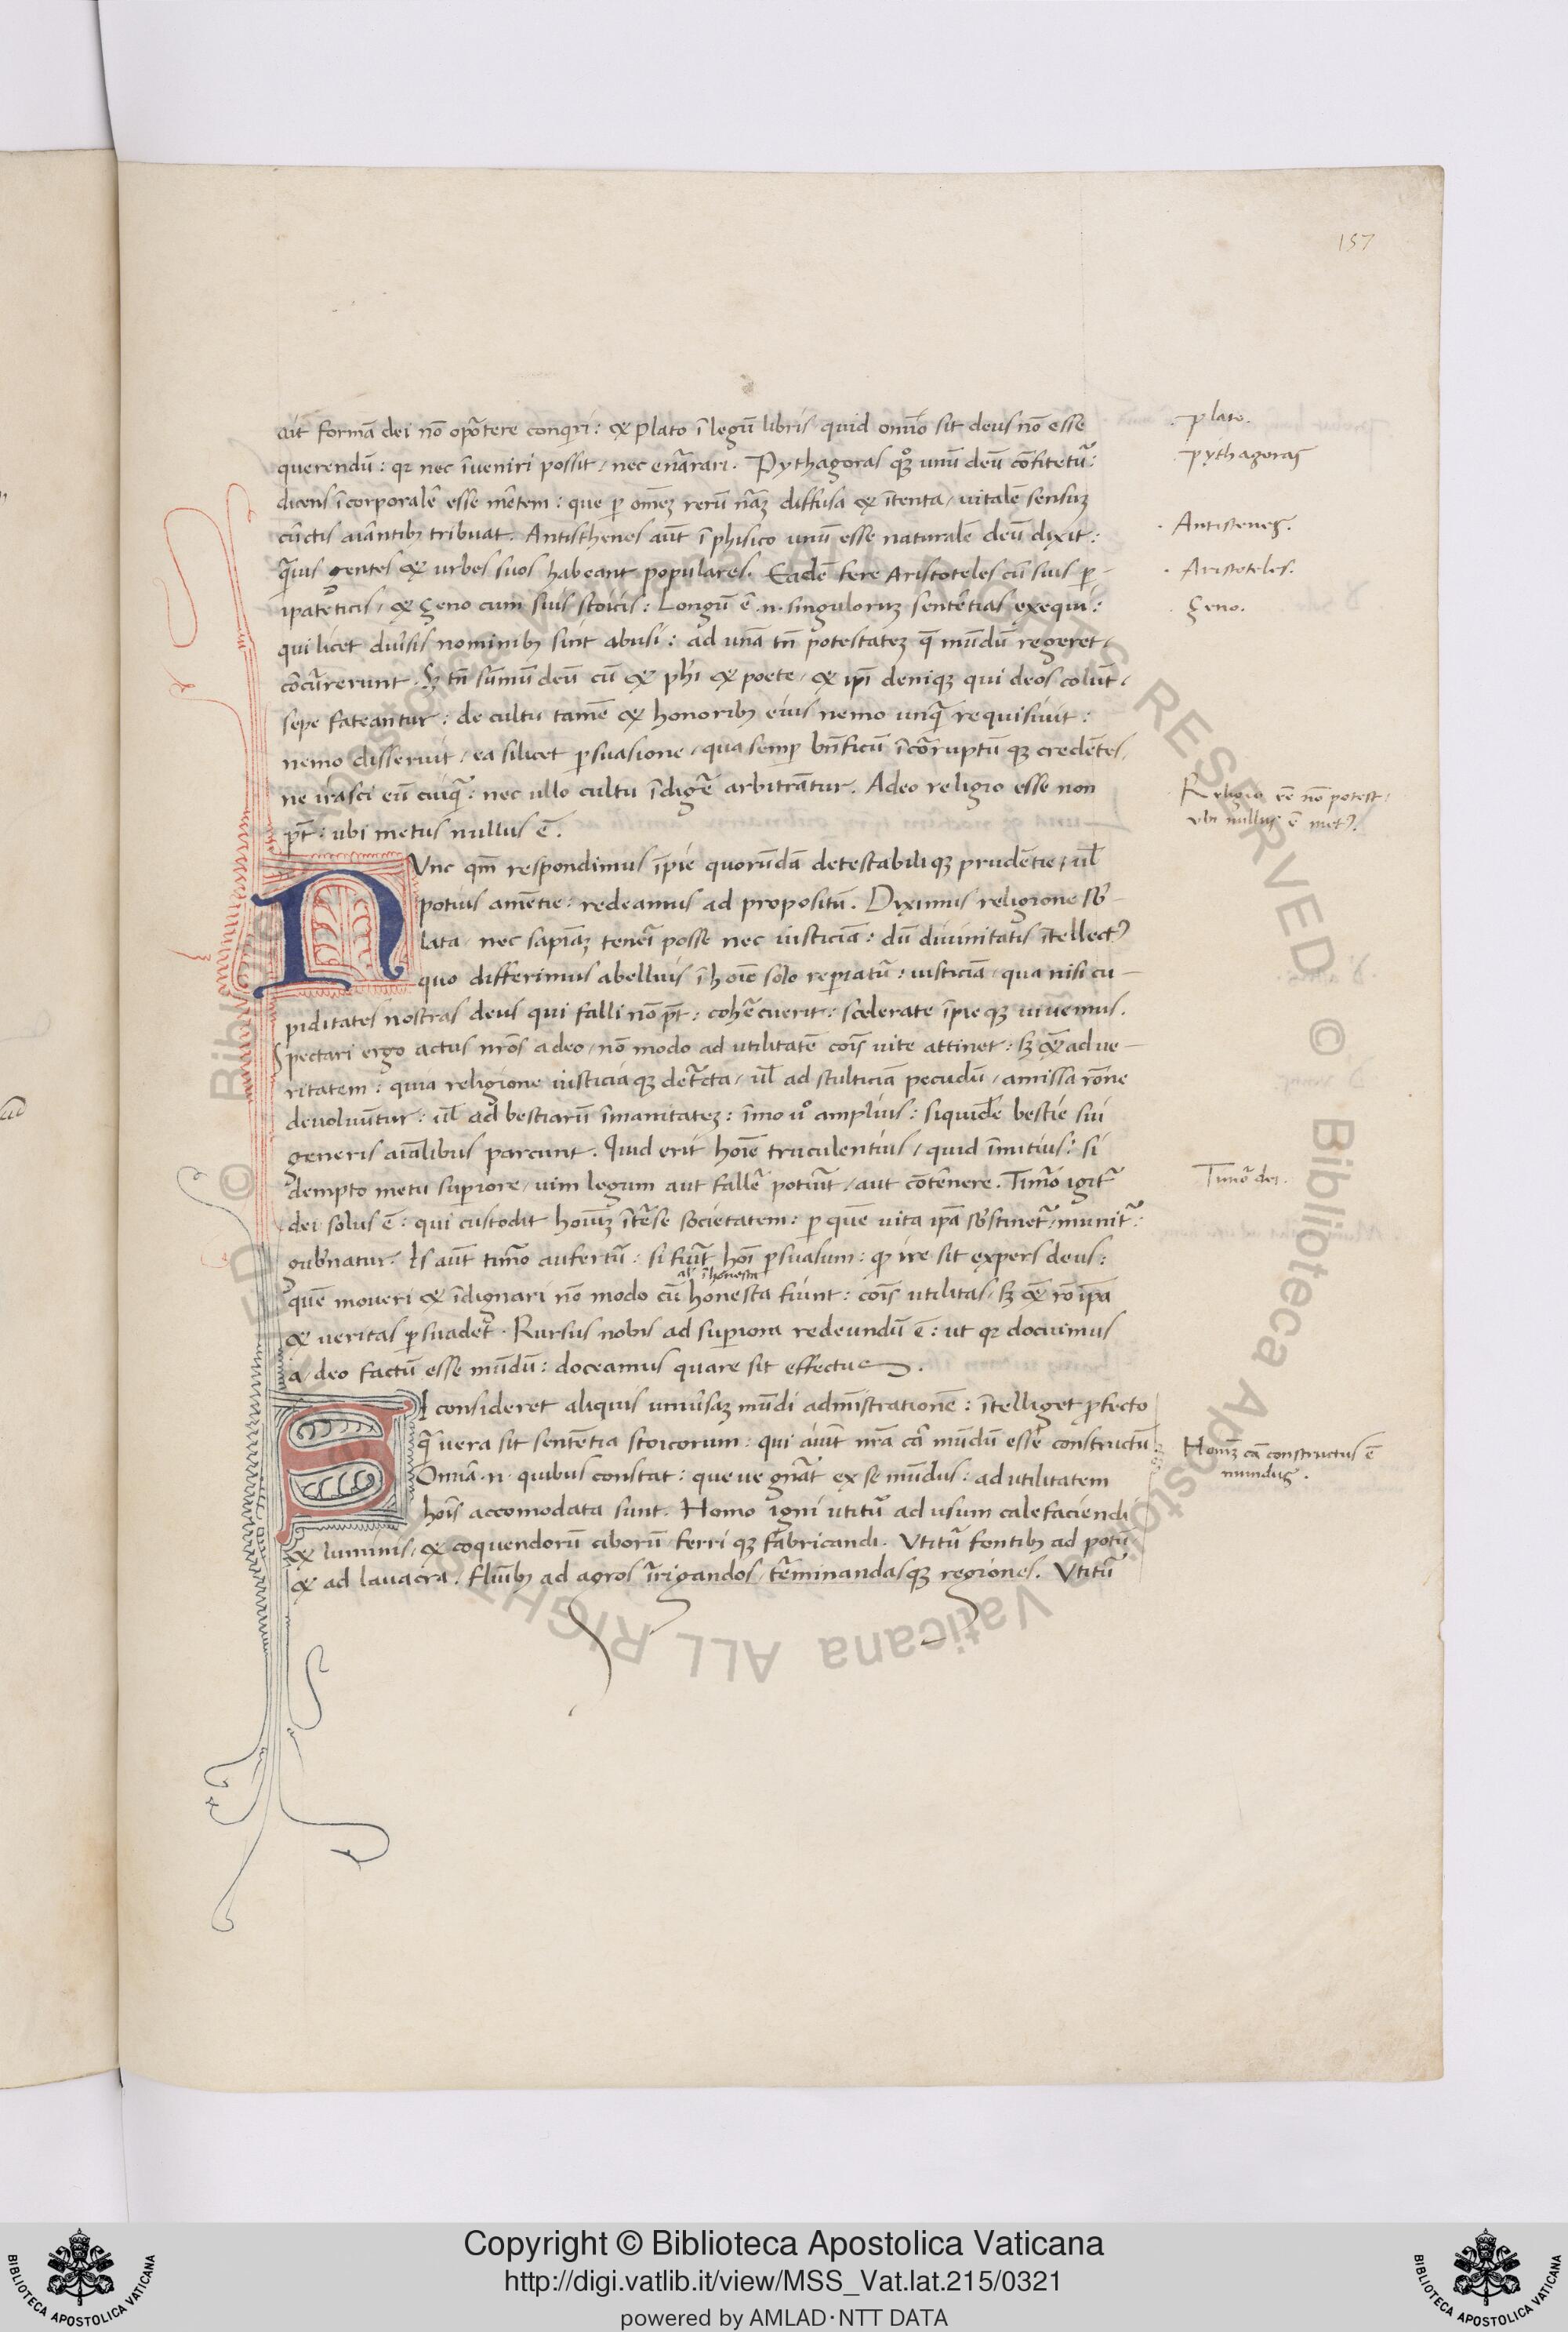 157
ait formā dei nō oportere conqri: & plato ī legū libris quid omīo sit deus nō esse
querendū: qr nec īveniri possit, nec enarrari. Pythagoras qqꝫ unū deū confitetur:
dicens īcorporalē esse mētem: que p omeꝫ rerū nāꝫ diffusa & ītenta, vitalē sensuꝫ
cūctis aiātibꝫ tribuat. Antisthenes aūt ī phisico unū esse naturalē deū dixit:
qvis gentes & urbes suos habeant populares. Eadē fere Aristoteles cū suis p-
ipateticis, & Zeno cum suis stoicis: Longū ē .n. singuloruꝫ sentētias exequi:
qui licet divsis nominibꝫ sint abusi: ad unā tn potestateꝫ q mūdū regeret,
cōcurrerunt. Sꝫ tn sūmū deū cū & phi & poete, & ipi deniqꝫ qui deos colūt,
sepe fateantur: de cultu tamē & honoribꝫ eius nemo unq requisivit:
nemo disseruit, ea silicet psuasione, qua semp bnficū īcorruptū qꝫ credētes,
ne irasci eū cuiq: nec ullo cultu īdigere arbitrātur. Adeo religio esse non
pt: ubi metus nullus ē.
NVnc qm respondimus īpie quorūdā detestabili qꝫ prudētie, ul
potius amētie: redeamus ad propositū. Diximus religione sb-
lata, nec sapiāꝫ teneri posse nec iusticiā: dū divinitatis ītellectꝰ
quo differimus abelluis ī hoīe solo repiatur: iusticiā, qua nisi cu-
piditates nostras deus qui falli nō pt: cohercuerit: scelerate īpie qꝫ vivemus.
Spectari ergo actus nros adeo, nō modo ad utilitatē cois vite attinet: sꝫ & ad ve-
ritatem: quia religione iusticia qꝫ detracta, ul ad stulticiā pecudū, amissa rōne
devoluūtur: ul ad bestiarū īmanitateꝫ: īmo uo amplius: siquidē bestie sui
generis aialibus parcunt. Quid erit hoīe truculentius, quid īmitius: si
dempto metu supiore, vim legum aut fallere potiut, aut cōtēnere. Timor igitr
dei solus ē: qui custodit hoiuꝫ īter se societatem: p quē vita ipā sbstinetur, munitr:
gubnatur. Is aūt timor aufertur: si fuūt hoī psuasum: qꝫ ire sit expers deus:
al īhonesta
quē moveri & īdignari nō modo cū honesta fiunt: cois utilitas, sꝫ & rō ipā
& veritas psuadet. Rursus nobis ad supiora redeundū ē: ut qr docuimus
a deo factū esse mūdū: doceamus quare sit effectus.
SI consideret aliquis univsaꝫ mūdi admīstrationē: ītelliget pfecto
q vera sit sentētia stoicorum: qui aiūt nrā cā mūdū esse constructū
Omīa .n. quibus constat: que ve gnāt ex se mūdus: ad utilitatem
hois accomodata sunt. Homo igni utitur ad usum calefaciendi
& luminis, & coquendorū ciborū, ferri qꝫ fabricandi. Utitur fontibꝫ ad potū
& ad lavacra. fluībꝫ ad agros irrigandos, termināndas qꝫ regiones. Utitur
. plato.
. Pythagoras
. Antistenes.
. Aristoteles.
. Zeno.
Religio eē nō potest,
ubi nullus ē metꝰ.
Timor dei.
Homīꝫ cā constructus ē
mundus.
Copyright © Biblioteca Apostolica Vaticana
http://digi.vatlib.it/view/MSS_Vat.lat.215/0321
powered by AMLAD·NTT DATA
BIBLIOTECA APOSTOLICA VATICANA
BIBLIOTECA APOSTOLICA VATICANA
© Biblioteca Apostolica Vaticana ALL RIGHTS RESERVED © Biblioteca Apostolica Vaticana ALL RIGHTS RESERVED